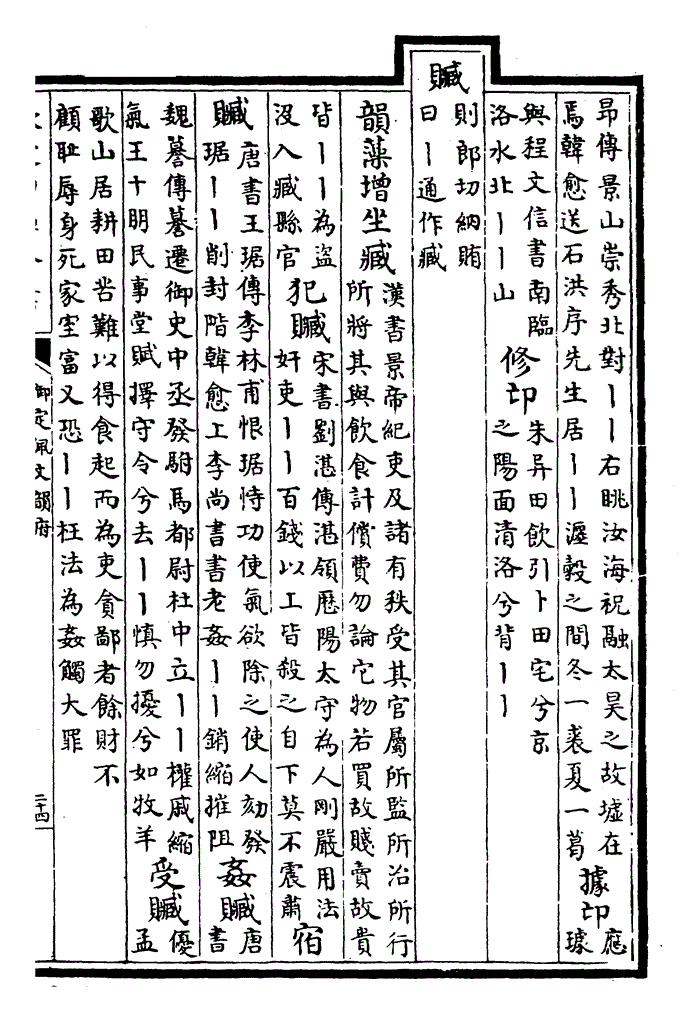 昂傳景山崇秀北對丨丨右眺汝海祝融太昊之故墟在
焉韓愈送石洪序先生居丨丨瀍穀之間冬一裘夏一葛
據邙
應
璩
與程文信書南臨
洛水北丨丨山
修邙
朱异田飲引卜田宅兮京
之陽面清洛兮背丨丨
贓
則郎切納賄
曰丨通作臧
韻藻增坐臧
漢書景帝紀吏及諸有秩受其官屬所監所治所行
所將其與飲食計償費勿論它物若買故賤賣故貴
皆丨丨為盜
沒入臧縣官
犯贓
宋書劉湛傳湛領歷陽太守為人剛嚴用法
奸吏丨丨百錢以上皆殺之自下莫不震肅
宿
贓
唐書王琚傳李林甫恨琚恃功使氣欲除之使人劾發
琚丨丨削封階韓愈上李尚書書老姦丨丨銷縮摧阻
姦贓
唐
書
魏謩傳謩遷御史中丞發駙馬都尉杜中立丨丨權戚縮
氣王十朋民事堂賦擇守令兮去丨丨慎勿擾兮如牧羊
受贓
優
孟
歌山居耕田苦難以得食起而為吏貪鄙者餘財不
顧恥辱身死家室富又恐丨丨枉法為姦觸大罪
御定佩文韻府
二十四